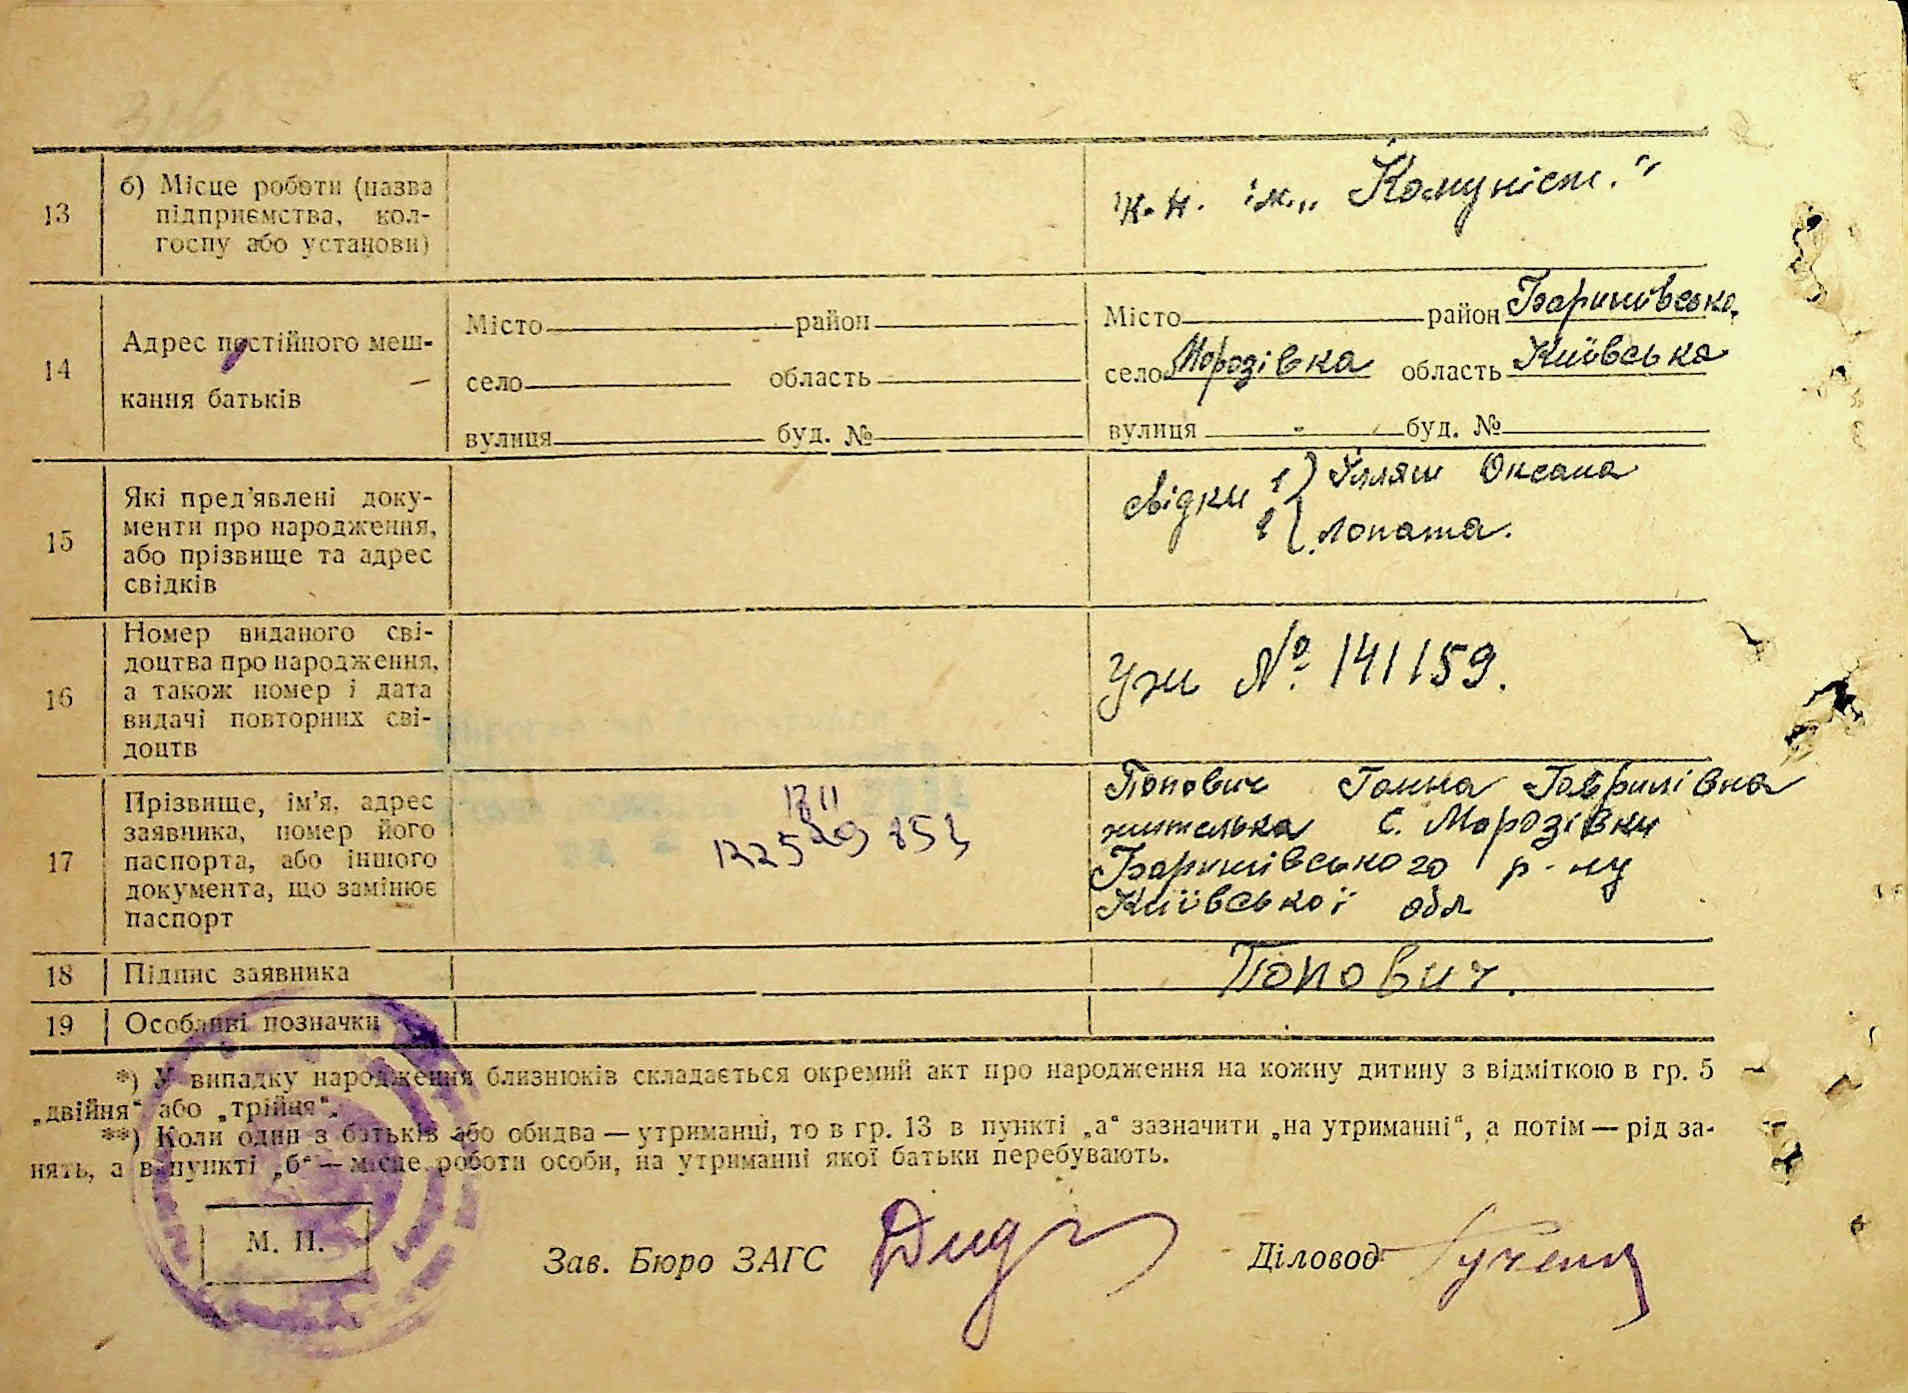 316
13
б) Місце роботи (назва
підприємства, кол-
госпу або установи)
к. н. ім. „Комуніст."
14
Адрес постійного меш-
кання батьків
Місто район
село область
вулиця буд. №
Місто район Баришівська
село Морозівка область Київська
вулиця - буд. №
15
Які пред'явлені доку-
менти про народження,
або прізвище та адрес
свідків
свідки 1) Ілляш Оксана
2) Лопата.
16
Номер виданого сві-
доцтва про народження,
а також номер і дата
видачі повторних сві-
доцтв
Ужи № 141159.
17
Прізвище, ім'я, адрес
заявника, номер його
паспорта, або іншого
документа, що замінює
паспорт
Попович Ганна Гаврилівна
жителька с. Морозівки
Баришівського р-ну
Київської обл
18
Підпис заявника
Попович.
19
Особливі позначки
*) У випадку народження близнюків складається окремий акт про народження на кожну дитину з відміткою в гр. 5
„двійня" або „трійня".
**) Коли один з батьків або обидва — утриманці, то в гр. 13 в пункті „а" зазначити „на утриманні", а потім — рід за-
нять, а в пункті „б" — місце роботи особи, на утриманні якої батьки перебувають.
М. П.
Зав. Бюро ЗАГС
Діловод